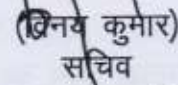 (विनय कुमार)
सचिव